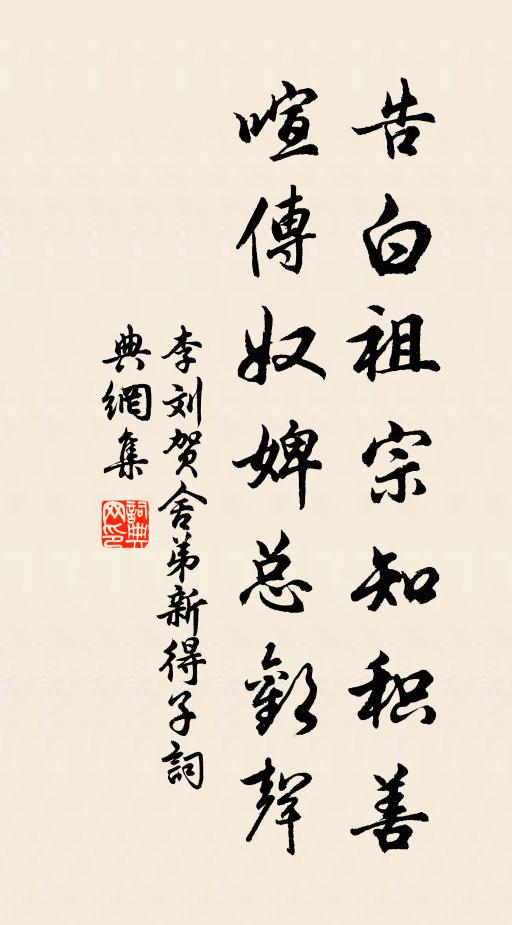 告白祖宗知积善
喧傳奴婢总歡聲
李刘贺舍弟新得子詞
典網集
詞典網印